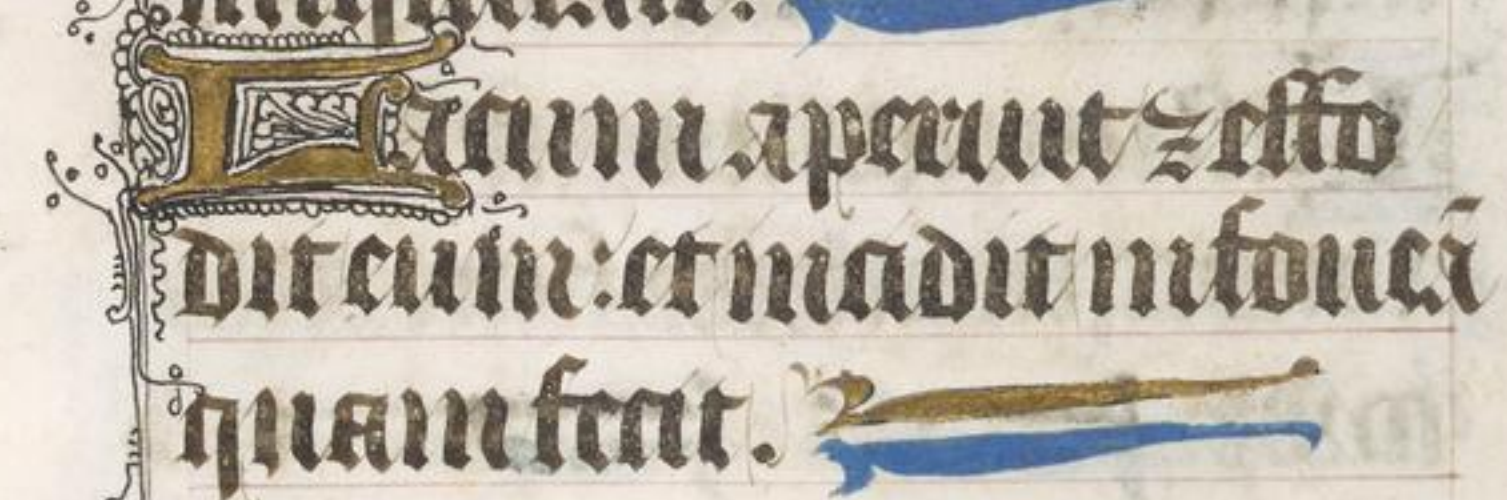 Lacum aperuit ⁊ effo
dit eum: et incidit in foueā
quam fecit.